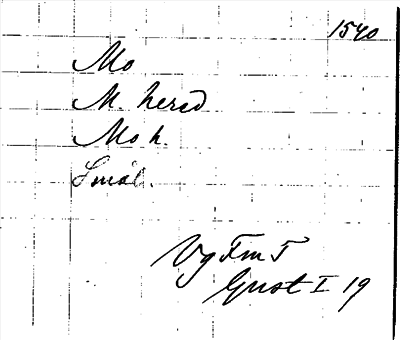 1540
Mo
M. herad
Mo h.
Smål.
Vg Fm T
Gust I 19